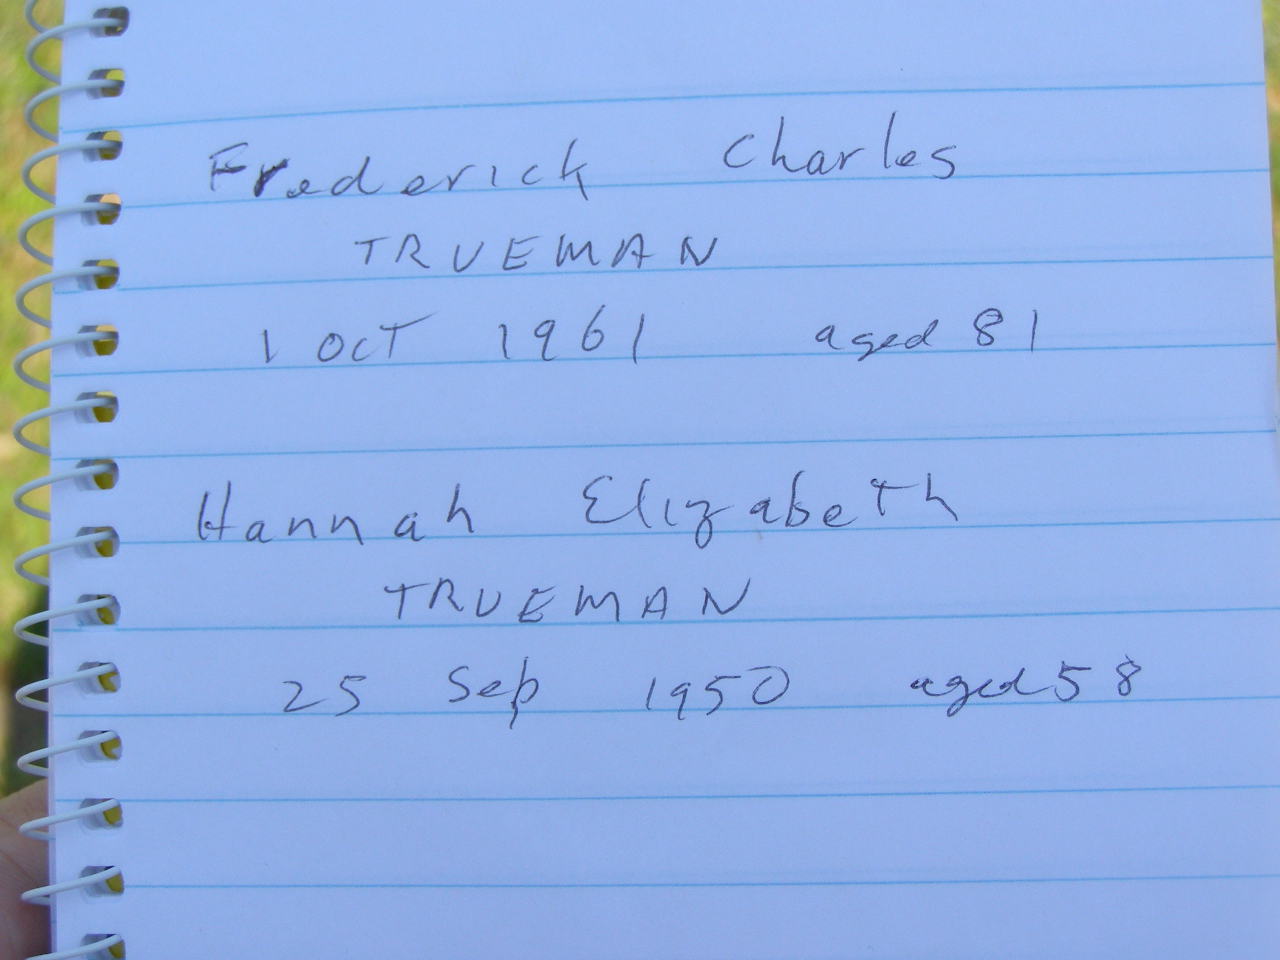 Frederick Charles
TRUEMAN
1 OCT 1961 aged 81
Hannah Elizabeth
TRUEMAN
25 Sep 1950 aged 58